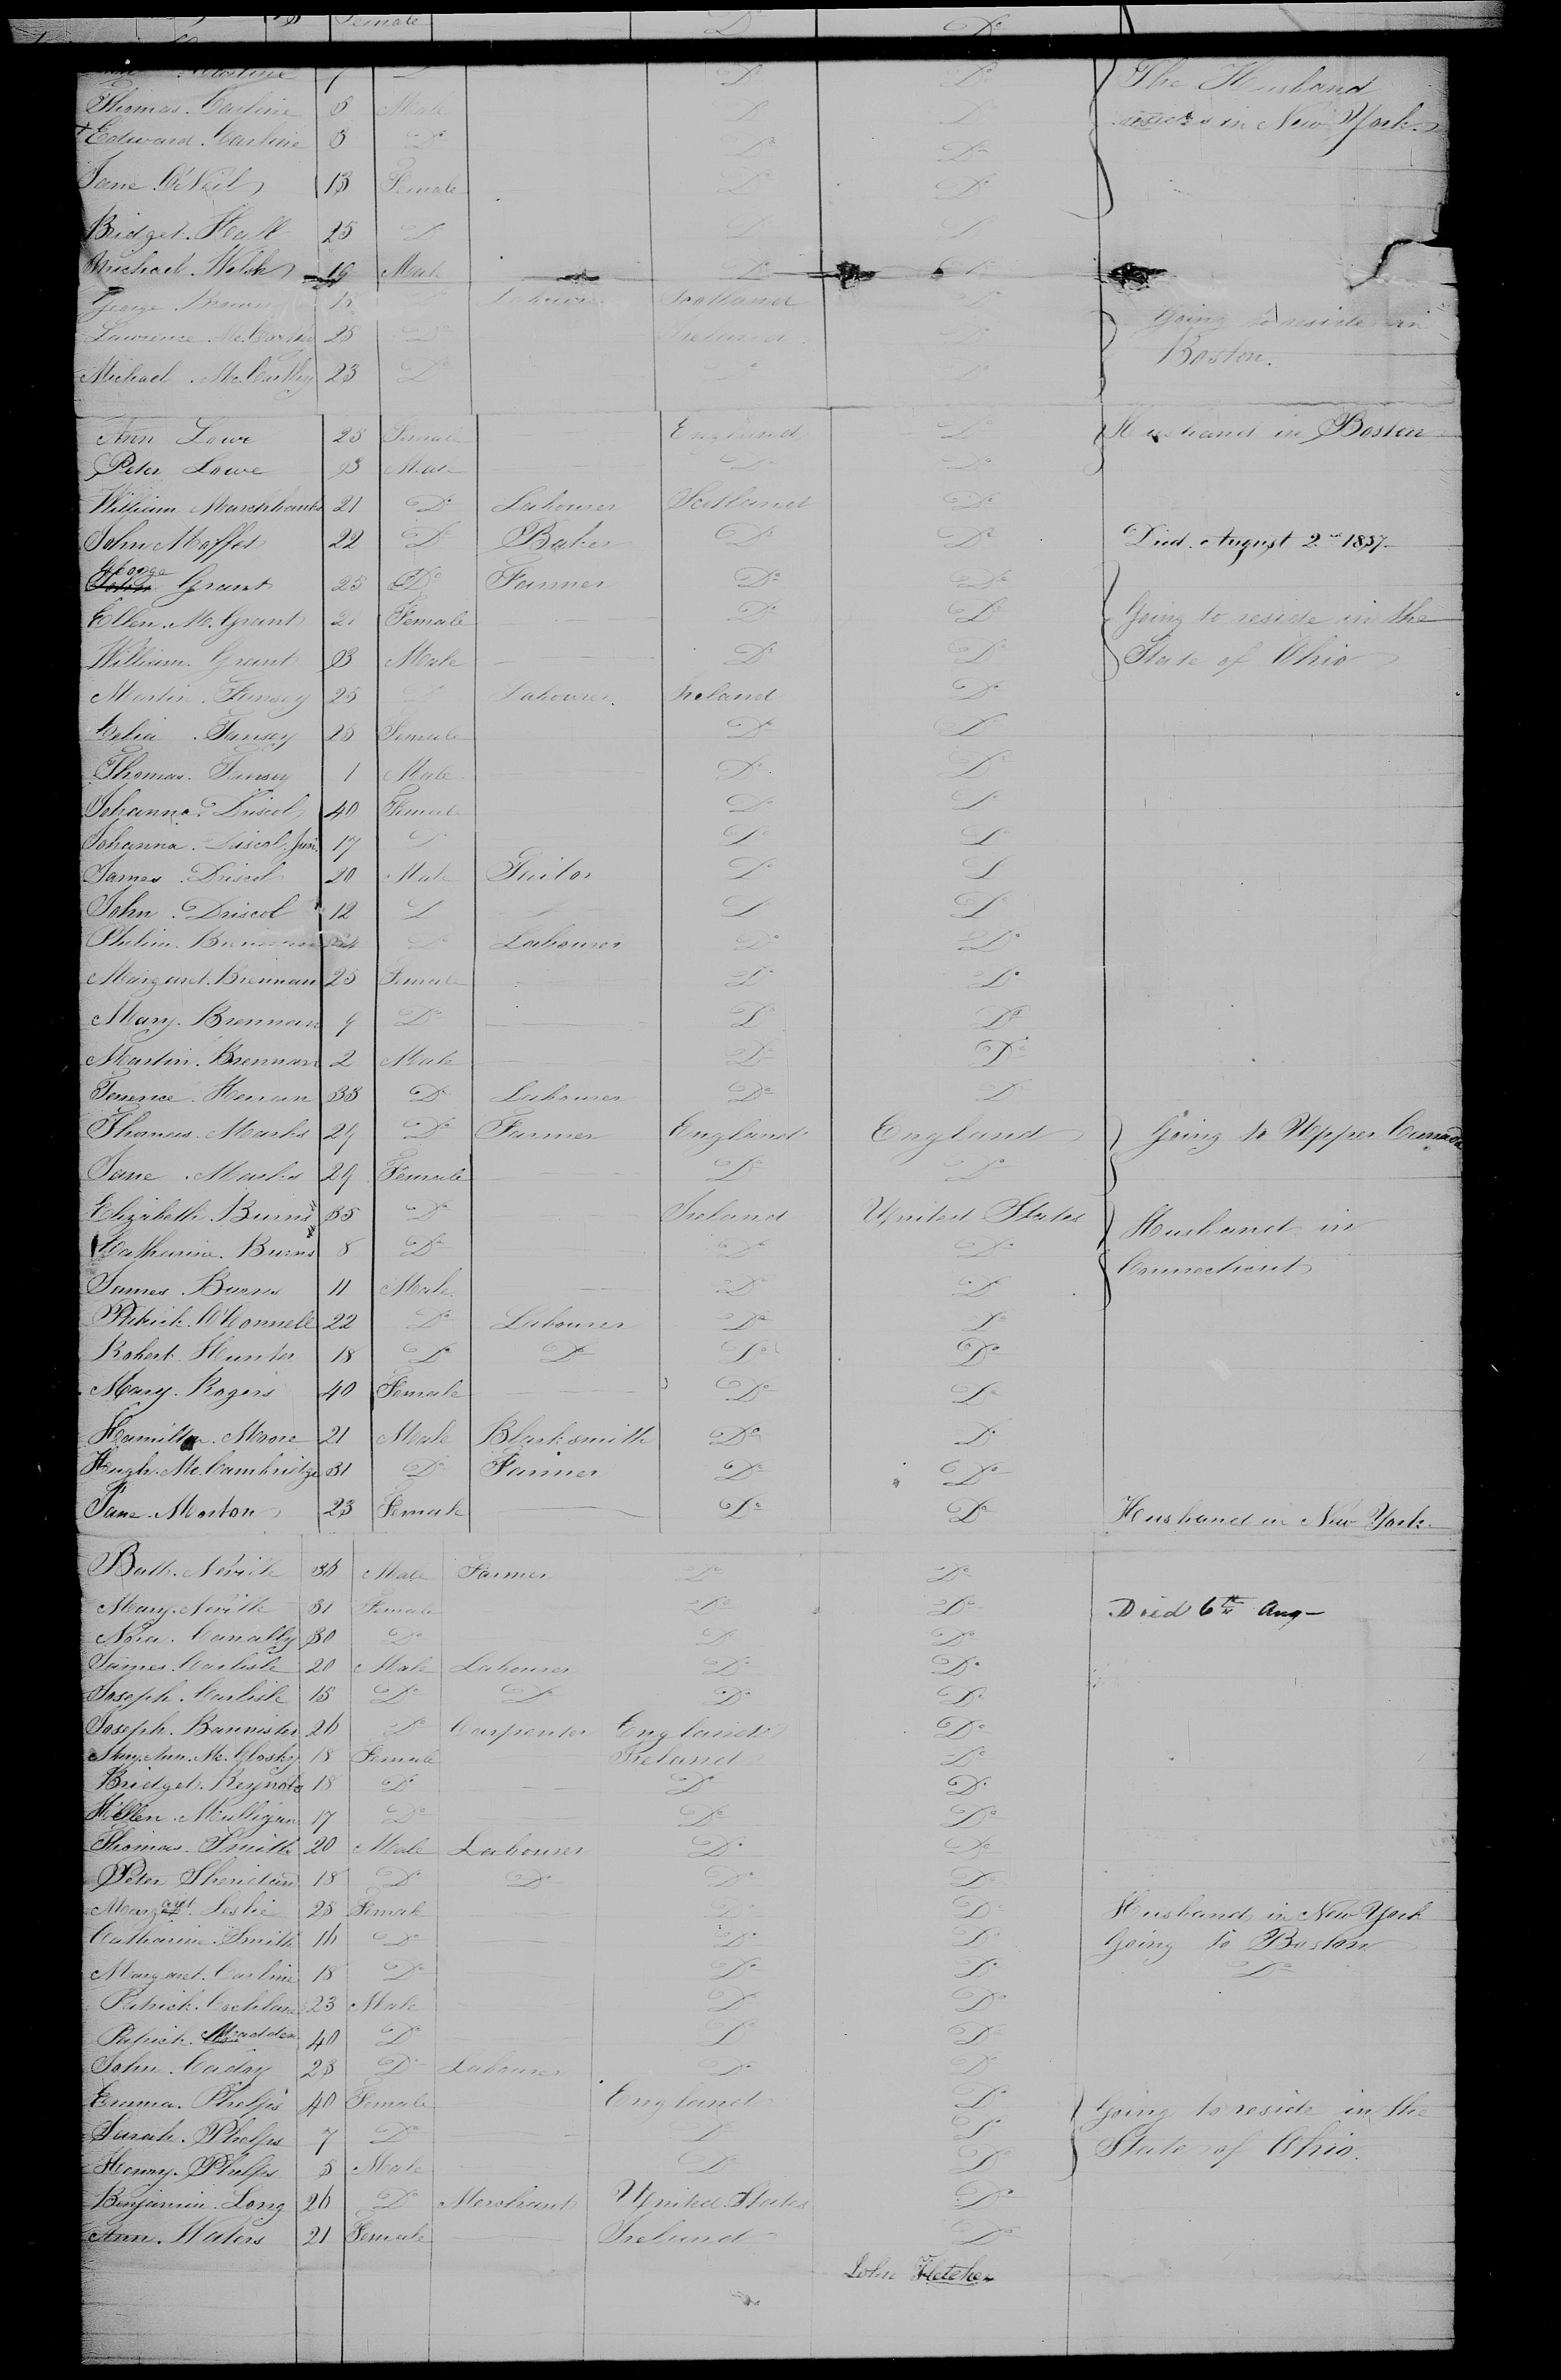 Female Do Do
Carline 7 Do Do Do The Husband
Thomas Carline 5 Male D D resides in New York
Edward Carline 3 Do Do Do
Jane O'Neil 13 Female Do Do
Bridget Hall 25 D D D
Michael Welsh 19 Male Do Do
George Brown Labourer Scotland Do Going to reside in
Lawrence Mc. 25 Do Ireland Do Boston.
Michael Mc.Carthy 23 Do Do Do
Ann Lowe 25 Female England Do Husband in Boston
Peter Lowe 3 Male Do Do
William Marchbanks 21 Do Labourer Scotland Do
John Moffat 22 Do Baker Do Do Died August 2nd 1837
George Grant 25 Do Farmer Do Do
Ellen M. Grant 21 Female Do Do Going to reside in the
William Grant 3 Male Do Do State of Ohio
Martin Fansey 25 Do Labourer Ireland Do
Celia Fansey 25 Female Do D
Thomas Fansey 1 Male Do Do
Johanna Driscol 40 Female Do Do
Johanna Driscol Jun. 17 Do Do Do
James Driscol 20 Male Tailor Do D
John Driscol 12 D D D
Phelim Brennan Do Labourer Do Do
Margaret Brennan 25 Female Do Do
Mary Brennan 4 Do Do Do
Martin Brennan 2 Male Do Do
Terrence Heeran 33 Do Labourer Do D
Thomas Marks 24 Do Farmer England England Going to Upper Canada
Jane Marks 24 Female Do Do
Elizabeth Burns 35 Do Ireland United States Husband in
Catharine Burns 8 Do Do Do Connecticut
James Burns 11 Male Do D
Patrick O'Connell 22 Do Labourer Do Do
Robert Hunter 18 Do Do Do Do
Mary Rogers 40 Female Do Do
Hamilton Moore 21 Male Blacksmith Do Do
Hugh Mc.Cambridge 31 Do Farmer Do Do
Jane Morton 23 Female Do Do Husband in New York
Bath. Nevile 36 Male Farmer Do Do
Mary Neville 31 Female Do Do Died 6th Aug
Nora Canally 30 Do Do Do
James Carlisle 20 Male Labourer Do Do
Joseph Carlisle 15 Do Do Do Do
Joseph Bannister 26 Do Carpenter England Do
Mary Ann Mc.Closky 18 Female Ireland Do
Bridget Reynolds 18 Do Do Do
Hellen Mulligan 17 Do Do Do
Thomas Smith 20 Male Labourer Do Do
Peter Sheridan 18 Do Do Do Do
Margaret Leslie 25 Female Do Do Husband in New York
Catharine Smith 16 Do Do Do Going to Boston
Margaret Carline 18 Do Do Do Do
Patrick Cochlan 23 Male Do Do
Patrick Madden 40 Do Do Do
John Cady 23 Do Labourer Do Do
Emma Phelps 40 Female England Do Going to reside in the
Sarah Phelps 7 Do D Do State of Ohio.
Henry Phelps 5 Male Do Do
Benjamin Long 26 Do Merchant United States Do
Ann Waters 21 Female Ireland Do
John Fletcher